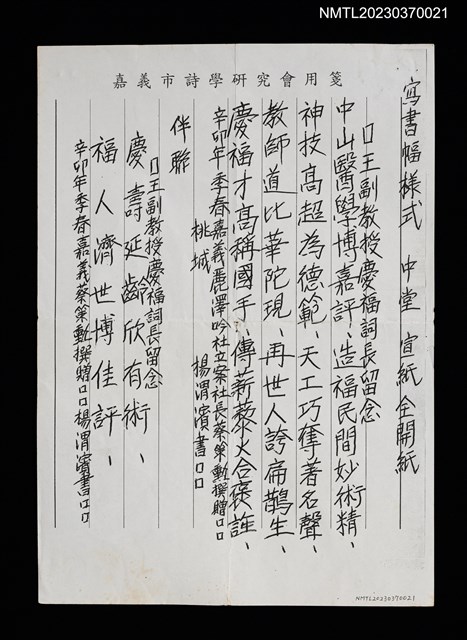 NMTL20230370021
嘉義市詩學研究會用箋
寫書幅樣式 中堂 宣紙全開紙
口王副教授慶福詞長留念
中山醫學博嘉評、造福民間妙術精、
神技高超為德範、天工巧奪著名聲、
教師道比華陀現、再世人誇扁鵲生、
慶福才高稱國手、傳薪藜火合褒誰、
辛卯年季春嘉義麗澤吟社立案社長蔡策勳撰贈口口
桃城 楊渭濱書口口
伴聯
口王副教授慶福詞長留念
慶壽延齡欣有術、
福人濟世博佳評、
辛卯年季春嘉義蔡策勳撰贈口口楊渭濱書口口
NMTL20230370021